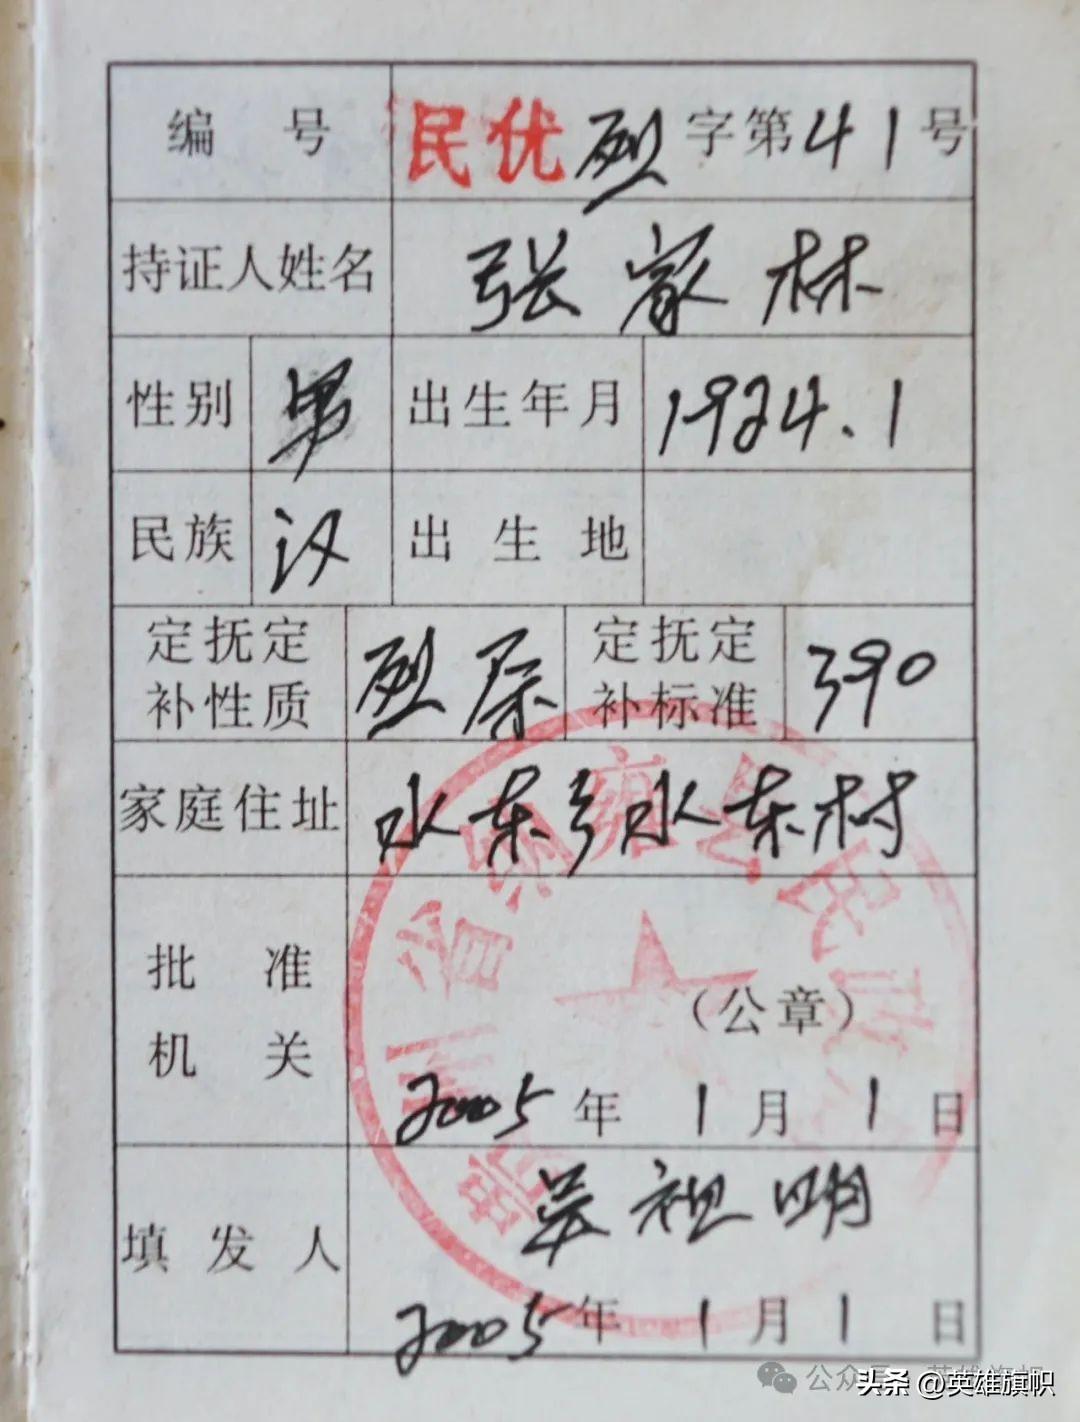 编号 民优烈字第41号
持证人姓名 张家林
性别 男 出生年月 1924.1
民族 汉 出生地
定抚定补性质 烈属 定抚定补标准 390
家庭住址 水东乡水东村
批准机关 (公章)
2005年1月1日
填发人 吴祖明
2005年1月1日
贵州省纳雍县民政局
公众号·英雄旗帜
头条 @英雄旗帜